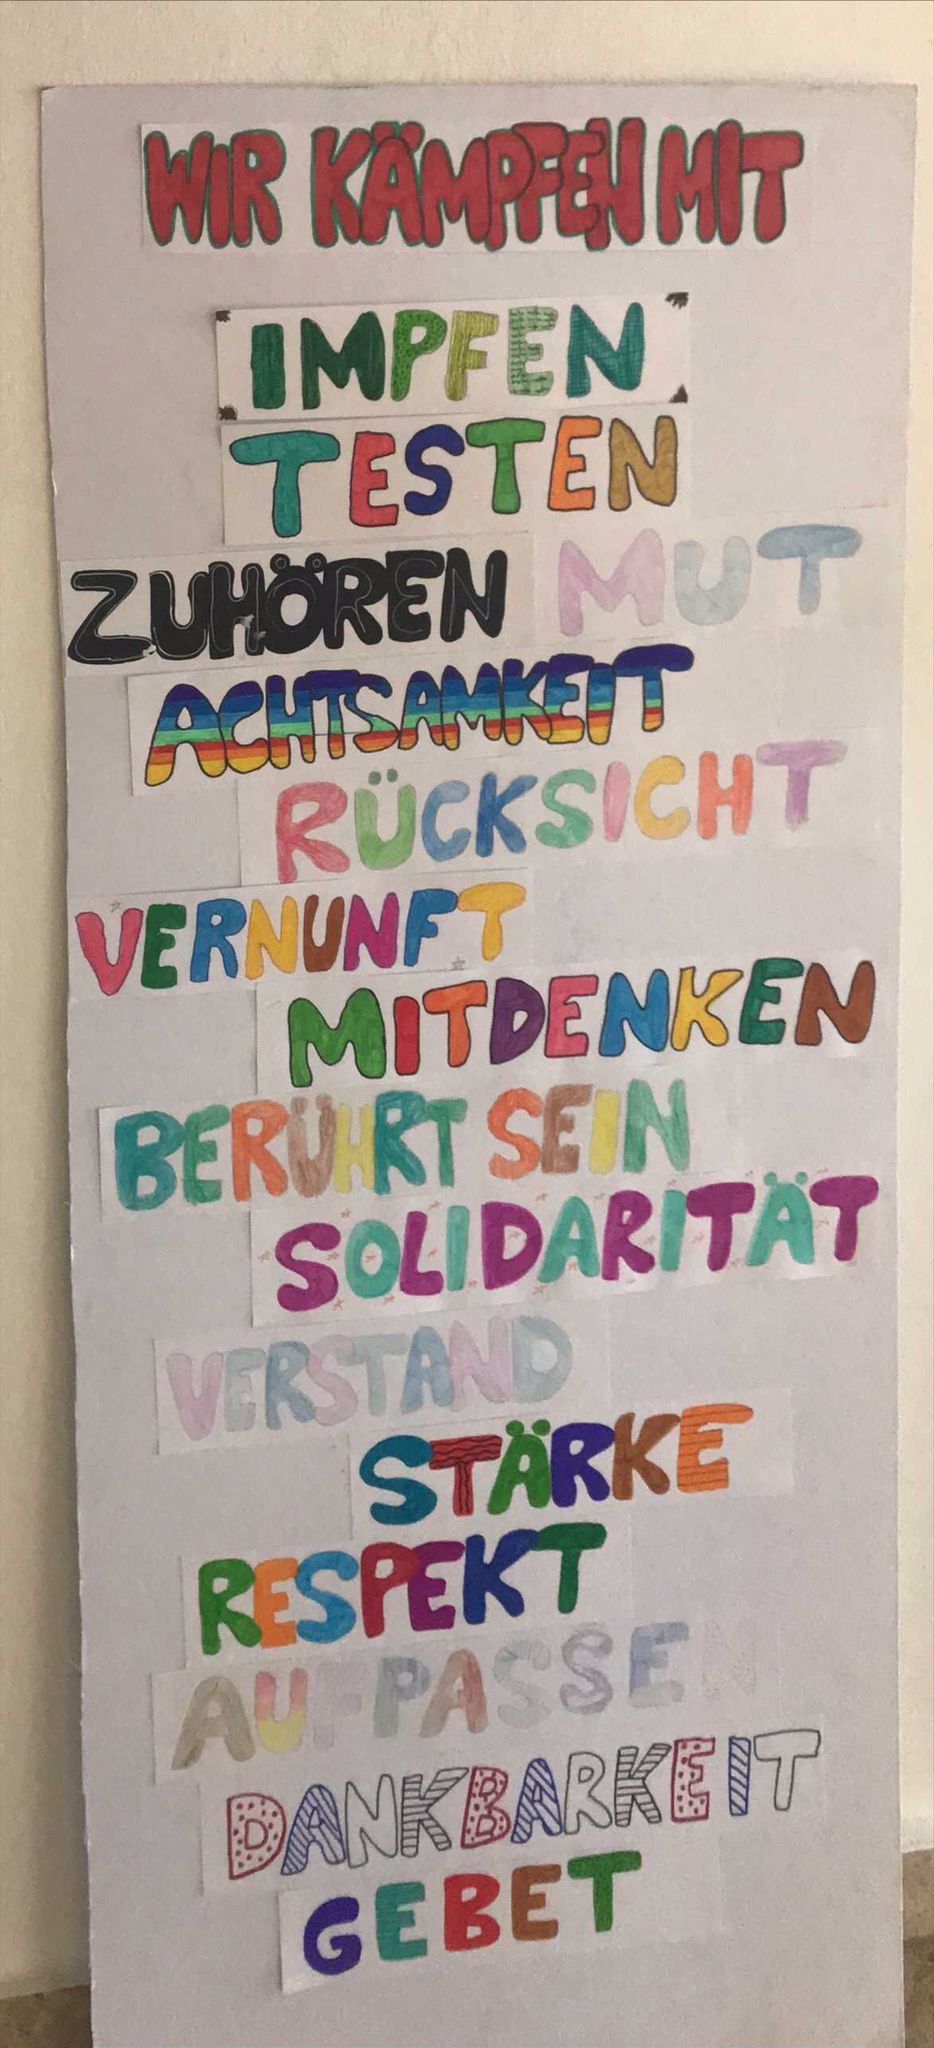 WIR KÄMPFEN MIT
IMPFEN
TESTEN
ZUHÖREN MUT
ACHTSAMKEIT
RÜCKSICHT
VERNUNFT
MITDENKEN
BERÜHRT SEIN
SOLIDARITÄT
VERSTAND
STÄRKE
RESPEKT
AUFPASSEN
DANKBARKEIT
GEBET